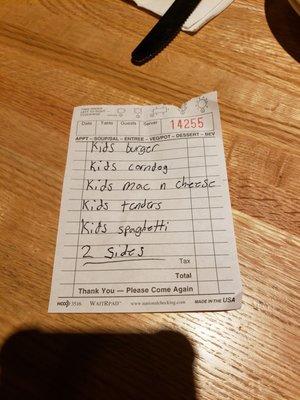 Date Table Guests Server 14255
APPT - SOUP/SAL - ENTREE - VEG/POT - DESSERT - BEV
Kids burger
Kids corndog
Kids mac n cheese
Kids tenders
Kids spaghetti
2 sides
Tax
Total
Thank You — Please Come Again
NCCO 3516 WAITRPAD™ www.nationalchecking.com MADE IN THE USA